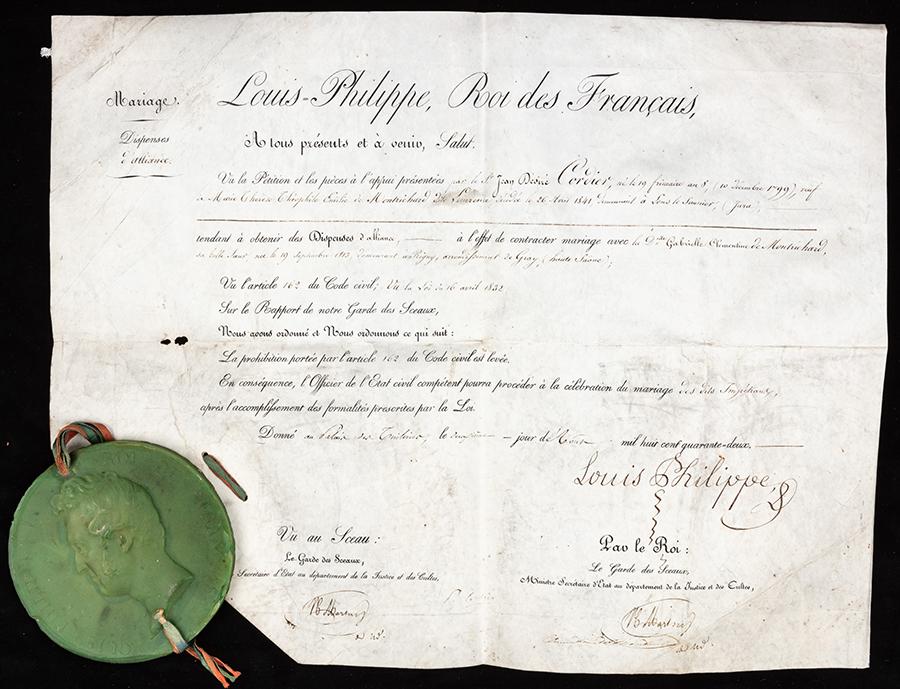 Mariage.
Dispenses
d'alliance.
Louis-Philippe, Roi des Français,
A tous présents et à venir, Salut.
Vu la Pétition et les pièces à l'appui présentées par le Sr. Jean Désiré Cordier, né le 19 frimaire an 8, (10 décembre 1799), veuf
de Marie Thérèse Théophile Emilie de Montrichard, décédée le 26 1841 demeurant à Lons le Saunier, (Jura),
tendant à obtenir des Dispenses d'alliance, à l'effet de contracter mariage avec la Dlle Gabrielle Clémentine de Montrichard,
sa belle Sœur, née le 19 septembre 1813, demeurant arrondissement de Gray, (haute Saône);
Vu l'article 162 du Code civil; Vu la Loi du 16 avril 1832
Sur le Rapport de notre Garde des Sceaux,
Nous avons ordonné et Nous ordonnons ce qui suit:
La prohibition portée par l'article 162 du Code civil est levée.
En conséquence, l'Officier de l'Etat civil compétent pourra procéder à la célébration du mariage des dits Impétrans,
après l'accomplissement des formalités prescrites par la Loi.
Donné au Palais des Tuileries, le jour d' mil huit cent quarante-deux.
Louis Philippe
Vu au Sceau:
Le Garde des Sceaux,
Secrétaire d'Etat au département de la Justice et des Cultes,
Par le Roi:
Le Garde des Sceaux,
Ministre Secrétaire d'Etat au département de la Justice et des Cultes,